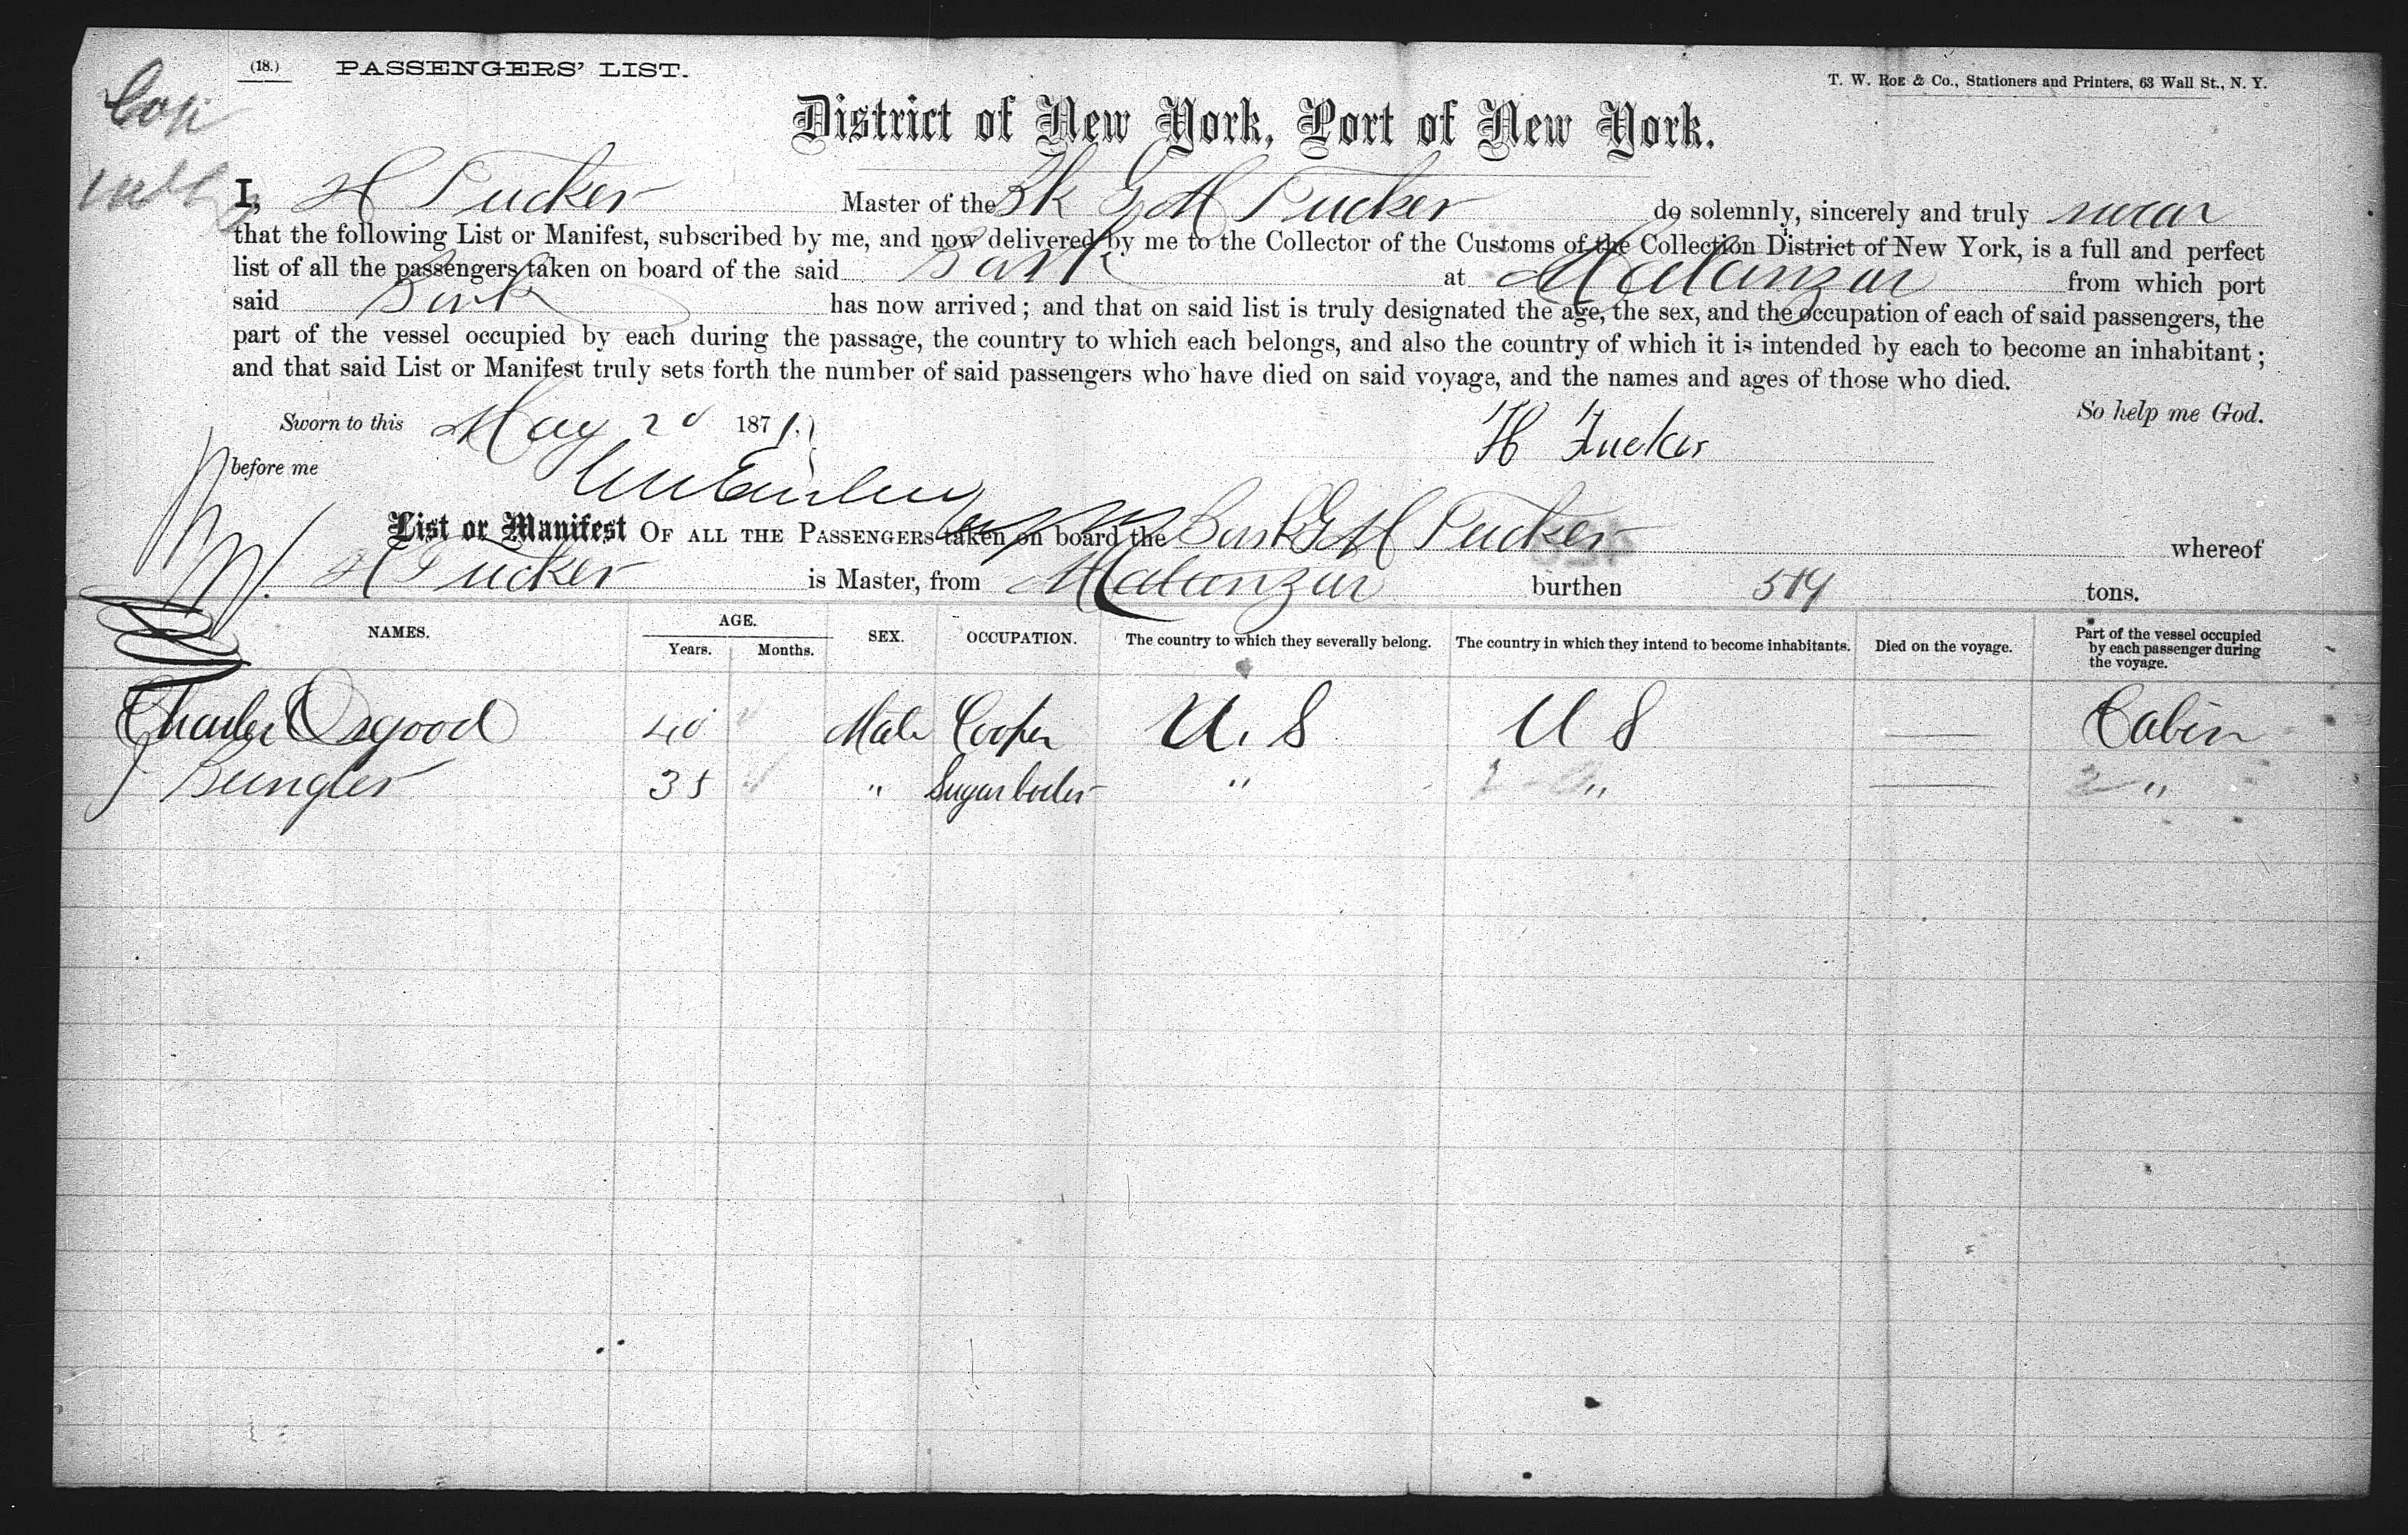 (18.) PASSENGERS' LIST.
T. W. ROE & Co., Stationers and Printers, 63 Wall St., N. Y.
District of New York, Port of New York.
I, H Tucker Master of the Bk G M Tucker do solemnly, sincerely and truly swear
that the following List or Manifest, subscribed by me, and now delivered by me to the Collector of the Customs of the Collection District of New York, is a full and perfect
list of all the passengers taken on board of the said Bark at Matanzas from which port
said Bark has now arrived; and that on said list is truly designated the age, the sex, and the occupation of each of said passengers, the
part of the vessel occupied by each during the passage, the country to which each belongs, and also the country of which it is intended by each to become an inhabitant;
and that said List or Manifest truly sets forth the number of said passengers who have died on said voyage, and the names and ages of those who died.
So help me God.
Sworn to this May 20 1871
H Tucker
before me
List or Manifest OF ALL THE PASSENGERS taken on board the Bark G M Tucker whereof
H Tucker is Master, from Matanzas burthen 519 tons.
NAMES. AGE. Years. Months. SEX. OCCUPATION. The country to which they severally belong. The country in which they intend to become inhabitants. Died on the voyage. Part of the vessel occupied by each passenger during the voyage.
Charles Osgood 40 Male Cooper U. S U S — Cabin
J Bungler 35 " Sugar boiler " " — "